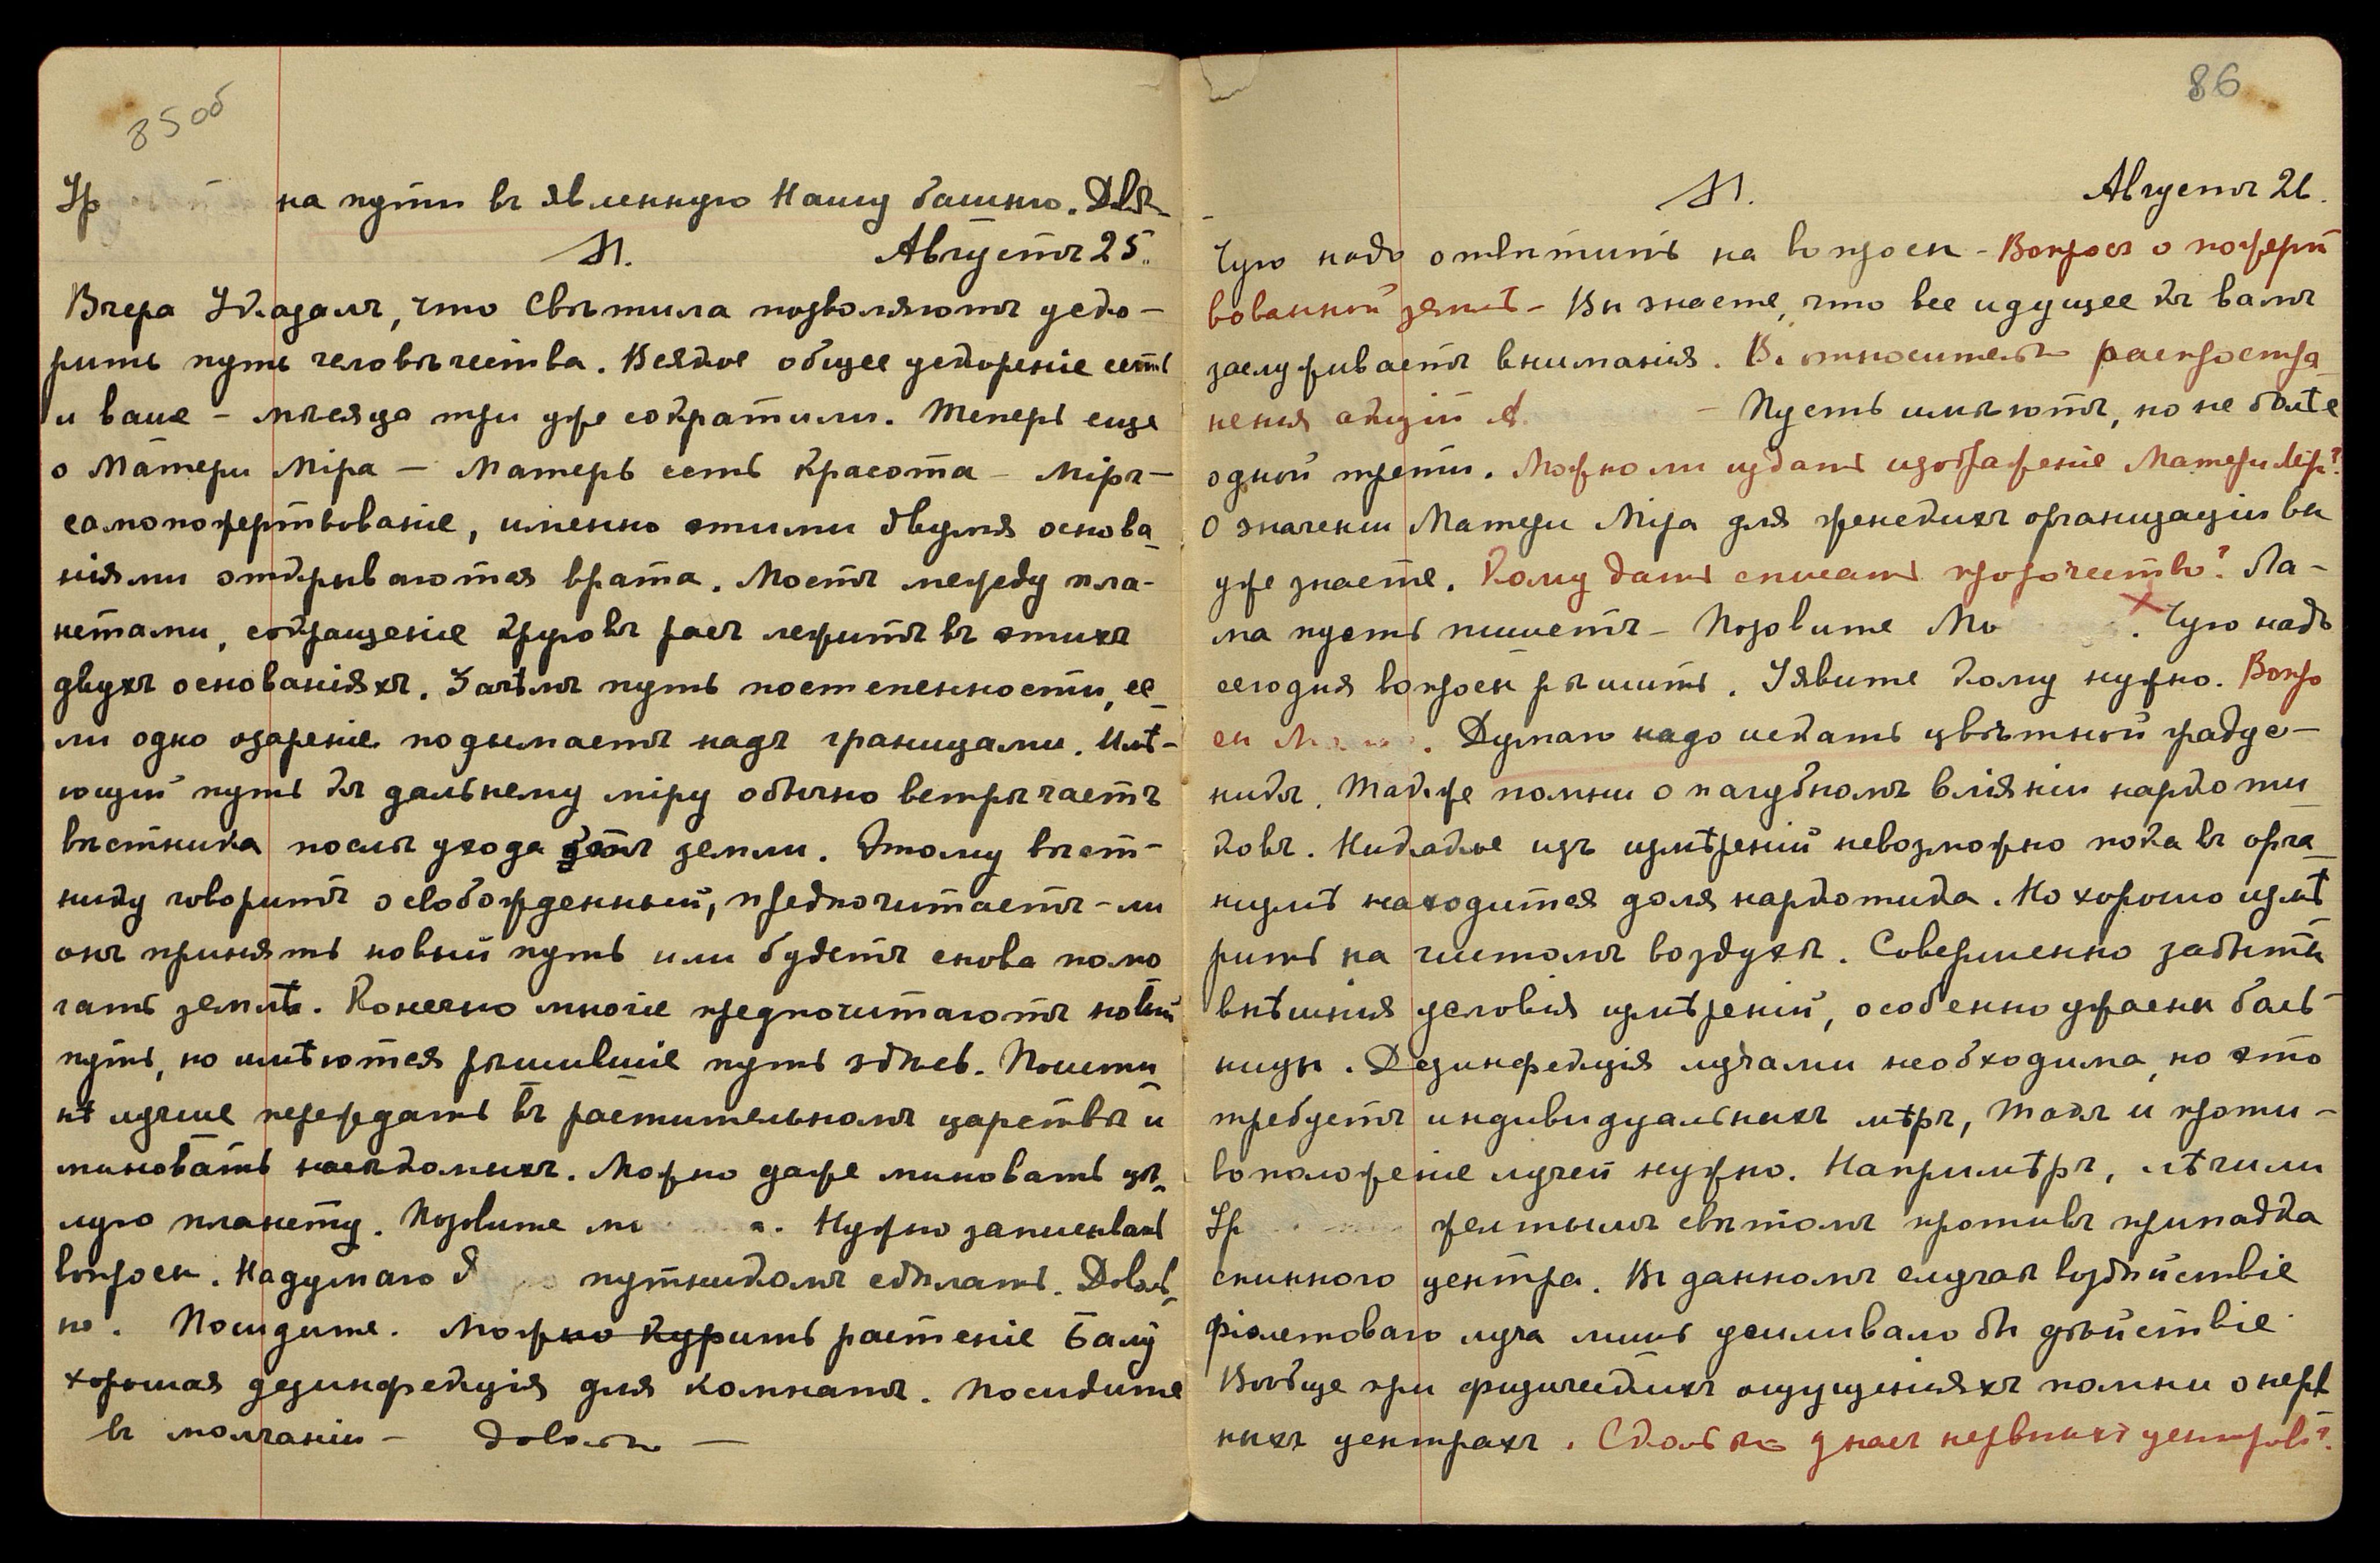 85 об
Ур на пути въ явленную Нашу башню. Дов.
М. Августъ 25.
Вчера Указалъ, что Свѣтила позволяютъ уско-
рить путь человѣчества. Всякое общее ускореніе есть
и ваше – мѣсяца три уже сократили. Теперь еще
о Матери Міра – Матерь есть Красота – Міръ –
самопожертвованіе, именно этими двумя основа-
ніями открываются врата. Мостъ между пла-
нетами, сокращеніе круговъ расъ лежитъ въ этихъ
двухъ основаніяхъ. Зачѣмъ путь постепенности, ес-
ли одно озареніе подымаетъ надъ границами. Имѣ-
ющій путь къ дальнему міру обычно встрѣчаетъ
вѣстника послѣ ухода отъ земли. Этому вѣст-
нику говоритъ освобожденный, предпочитаетъ-ли
онъ принять новый путь или будетъ снова помо
гать землѣ. Конечно многіе предпочитаютъ новый
путь, но имѣются рѣшившіе путь здѣсь. Поисти-
нѣ лучше переждать въ растительномъ царствѣ и
миновать насѣкомыхъ. Можно даже миновать цѣ-
лую планету. Позовите мо а. Нужно записывать
вопросы. Надумаю д путникомъ сдѣлать. Доволь-
но. Посидите. Можно курить растеніе Балу
хорошая дезинфекція для комнатъ. Посидите
въ молчаніи – довольно –
86
М. Августъ 26.
Чую надо отвѣтить на вопросы – Вопросъ о пожерт
вованной землѣ – Вы знаете, что все идущее къ вамъ
заслуживаетъ вниманія. Вс. относительно распростра-
ненія акцій А. – Пусть имѣютъ, но не болѣе
одной трети. Можно ли издать изображеніе Матери Мір?
О значеніи Матери Міра для женскихъ организацій вы
уже знаете. Кому дать списать пророчество? Ла-
ма пусть пишетъ – Позовите Мо . Чую надо
сегодня вопросы рѣшить. Уявите кому нужно. Вопро
сы М . Думаю надо искать цвѣтной градус-
никъ. Также помни о пагубномъ вліяніи наркоти-
ковъ. Никакое изъ измѣреній невозможно пока въ орга-
низмѣ находится доля наркотика. Но хорошо измѣ
рить на чистомъ воздухѣ. Совершенно забыты
внѣшнія условія измѣреній, особенно ужасны боль-
ницы. Дезинфекція лучами необходима, но это
требуетъ индивидуальныхъ мѣръ, также и проти-
воположеніе лучей нужно. Напримѣръ, лѣчили
Ур желтымъ свѣтомъ противъ припадка
спинного центра. Въ данномъ случаѣ воздѣйствіе
фіолетоваго луча лишь усиливало бы дѣйствіе.
Вообще при физическихъ ощущеніяхъ помни о нерв
ныхъ центрахъ. Сколько у насъ нервныхъ центровъ?